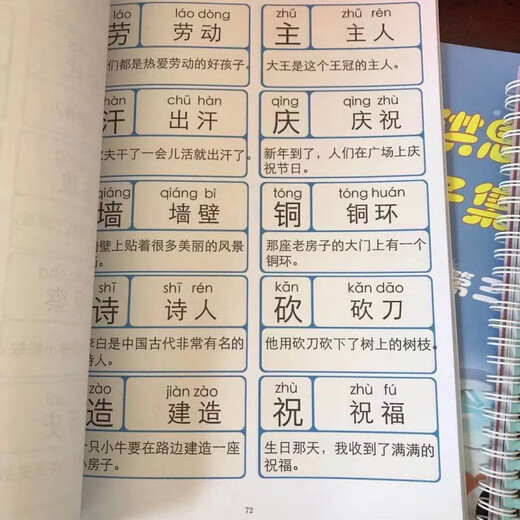 láo láo dòng
劳 劳动
们都是热爱劳动的好孩子。
zhǔ zhǔ rén
主 主人
大王是这个王冠的主人。
hàn chū hàn
汗 出汗
夫干了一会儿活就出汗了。
qìng qìng zhù
庆 庆祝
新年到了，人们在广场上庆
祝节日。
qiáng qiáng bì
墙 墙壁
壁上贴着很多美丽的风景
tóng tóng huán
铜 铜环
那座老房子的大门上有一个
铜环。
shī shī rén
诗 诗人
李白是中国古代非常有名的
诗人。
kǎn kǎn dāo
砍 砍刀
他用砍刀砍下了树上的树枝。
zào jiàn zào
造 建造
只小牛要在路边建造一座
小房子。
zhù zhù fú
祝 祝福
生日那天，我收到了满满的
祝福。
72
第三